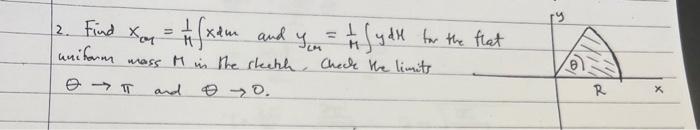 2. Find x_cm = 1/M ∫ x dm and y_cm = 1/M ∫ y dM for the flat
uniform mass M in the sketch. Check the limits
θ → π and θ → 0.
y
θ
R
x